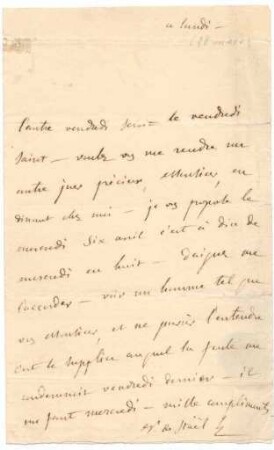 ce lundi —
l'autre vendredi sera le vendredi
saint — voulez vs me rendre un
autre jour précieux, Messieurs, en
dinant chez moi — je vs propose le
mercredi six avril c'est à dire de
mercredi en huit — daignez me
l'accorder — voir un homme tel que
vs et ne pouvoir l'entendre
est le supplice auquel la foule me
condamnoit vendredi dernier — il
me faut mercredi — mille compliments
de Staël